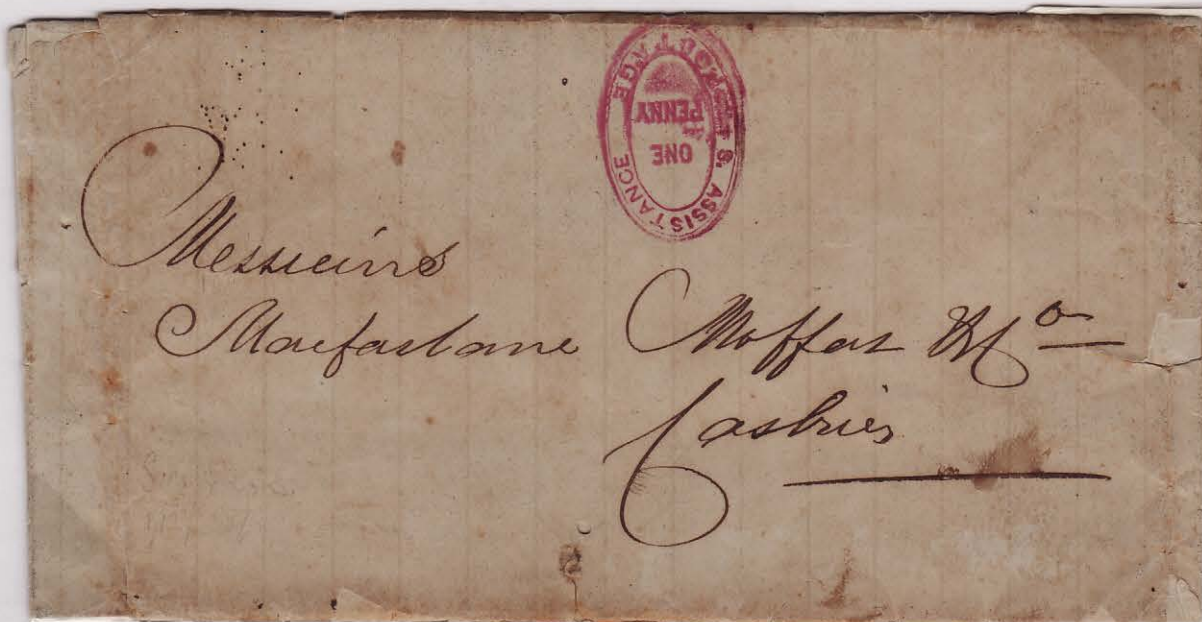 S. S. ASSISTANCE
POSTAGE
ONE
PENNY
Messieurs
Macfarlane Moffat & Co
Castries